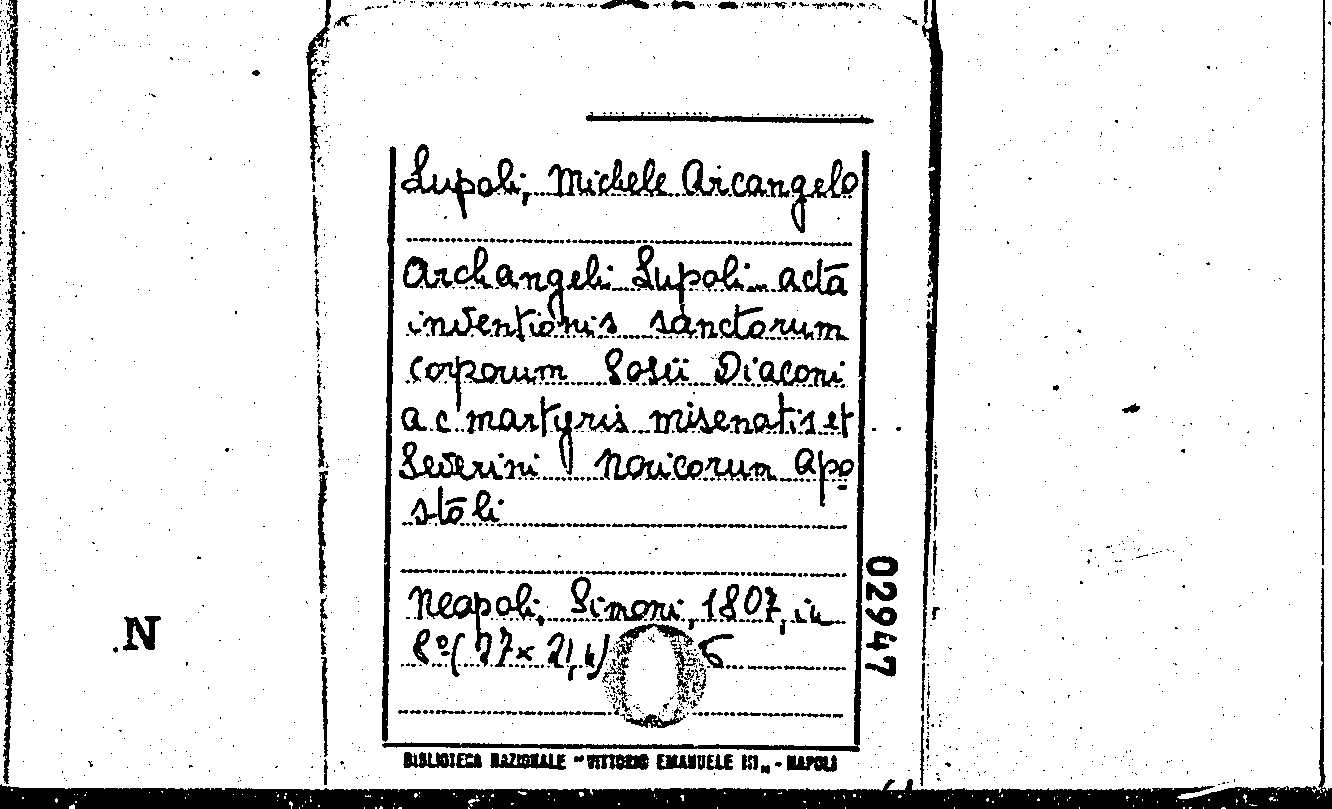 Lupoli, Michele Arcangelo
Archangeli Lupoli acta
inventionis sanctorum
corporum Sosii Diaconi
ac martyris misenatis et
Severini Noricorum Apo-
stoli
Neapoli, Simoni, 1807, in
8º (27×21,4)
02947
N
BIBLIOTECA NAZIONALE "VITTORIO EMANUELE III" - NAPOLI